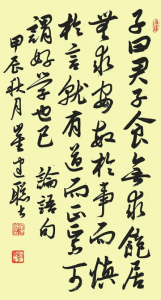 子曰君子食無求飽居
無求安敏於事而慎
於言就有道而正焉可
謂好学也已 論語句
甲辰秋月